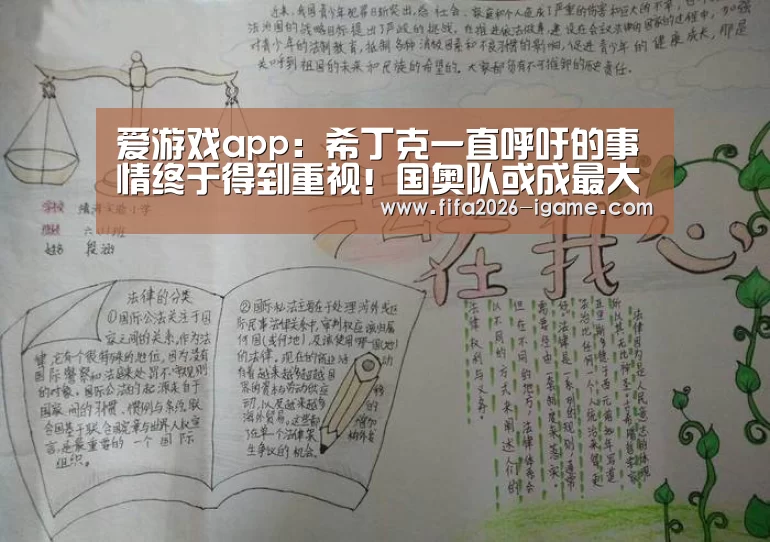 近来,我国青少年犯罪日渐突出,给社会、家庭和个人造成了严重的伤害和巨大的不幸,也
法治国的战略目标提出了严峻的挑战,在推进依法做事,建设在会议法律的国家的过程中,加强
对青少年的法制教育,抵制各种消极因素和不良习惯的影响,促进青少年的健康成长,那是
关呼到祖国的未来和民族的希望的。大家都负有不可推卸的历史责任。
爱游戏app:希丁克一直呼吁的事
情终于得到重视!国奥队或成最大
www.fifa2026-igame.com
学校 实验小学
班级 六 班
姓名 段
法 在我心
法律的分类
①国际公法关注于国
家之间的关系,作为法
律,它有个很特殊的地位,因为没有
国际警察和法庭来处罚不守规则
的对象。国际公法的起源来自于
国家间的习惯、惯例与条约,联
合国基于联合国宪章与世界人权宣
言,是最重要的一个国际
组织。
②国际私法主要在于处理涉外或区
际民事法律关系中,审判权应该归属
何国(或何地)及该使用哪国(地)
的法律。现在的商业活动
有着越来越超越国
界的资本与劳动供应
动,
海外贸易。这些都
了在单个法律案
生争议的机会。
的
增加
法律因为是人民意志的体现
所以其无比神圣,古希腊哲学家
亚里斯多德于西元前四世纪写道
法治比任何一个人统治来得更
好。法律是一系列的规则,通常
需要经由一套制度来落实。
但在不同的地方,法律体系会
以不同的方式来阐述人们的
法律权利与义务。